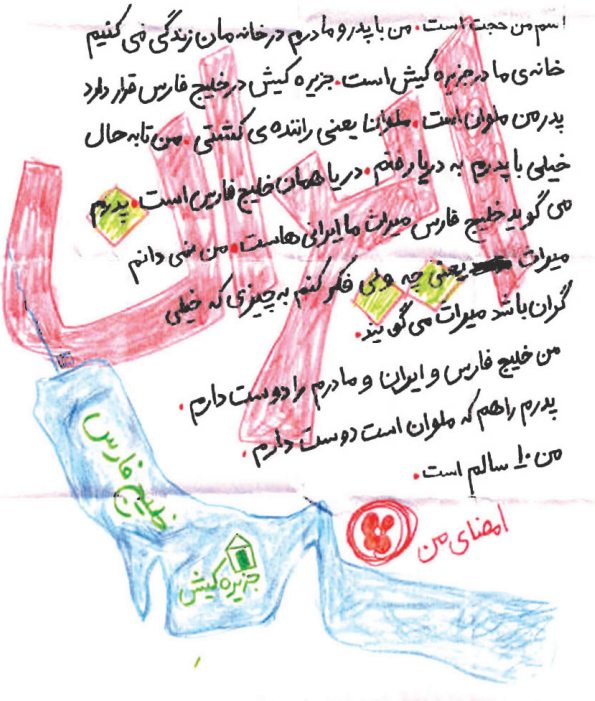 اسم من حجت است. من با پدر و مادرم در خانه مان زندگی می کنیم
خانه ی ما در جزیره کیش است. جزیره کیش در خلیج فارس قرار دارد
پدر من ملوان است. ملوان یعنی راننده ی کشتی. من تا به حال
خیلی با پدرم به دریا رفتم. دریا همان خلیج فارس است. پدرم
می گوید خلیج فارس میراث ما ایرانی هاست. من نمی دانم
میراث یعنی چه ولی فکر کنم به چیزی که خیلی
گران باشد میراث می گویند.
من خلیج فارس و ایران و مادرم را دوست دارم.
پدرم را هم که ملوان است دوست دارم.
من ۱۰ سالم است.
ایران
امضای من
خلیج فارس
جزیره کیش